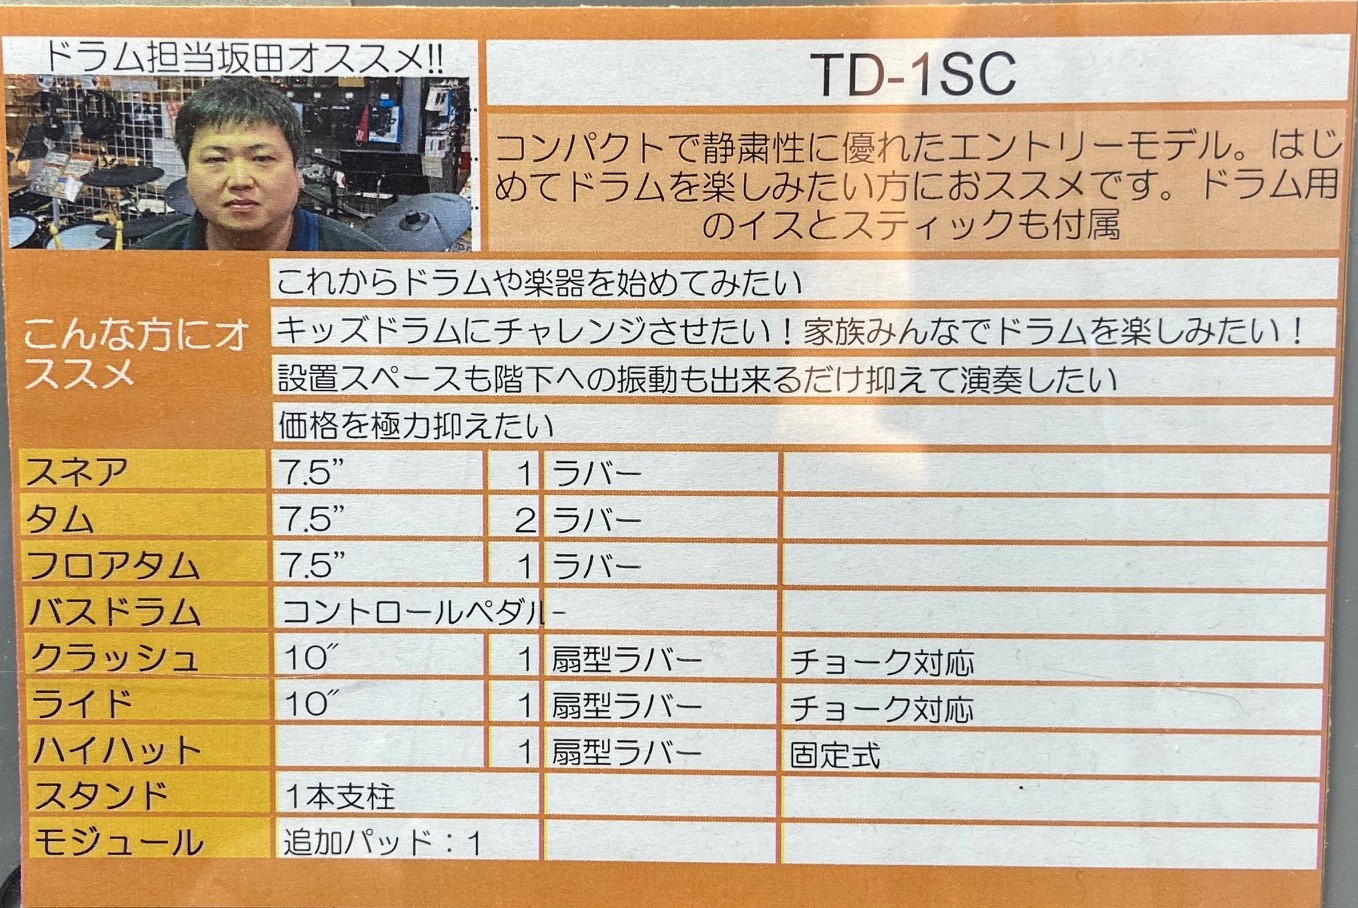 ドラム担当坂田オススメ!!
TD-1SC
コンパクトで静粛性に優れたエントリーモデル。はじ
めてドラムを楽しみたい方におススメです。ドラム用
のイスとスティックも付属
こんな方にオ
ススメ
これからドラムや楽器を始めてみたい
キッズドラムにチャレンジさせたい！家族みんなでドラムを楽しみたい！
設置スペースも階下への振動も出来るだけ抑えて演奏したい
価格を極力抑えたい
スネア 7.5” 1 ラバー
タム 7.5” 2 ラバー
フロアタム 7.5” 1 ラバー
バスドラム コントロールペダル -
クラッシュ 10″ 1 扇型ラバー チョーク対応
ライド 10″ 1 扇型ラバー チョーク対応
ハイハット 1 扇型ラバー 固定式
スタンド 1本支柱
モジュール 追加パッド：1